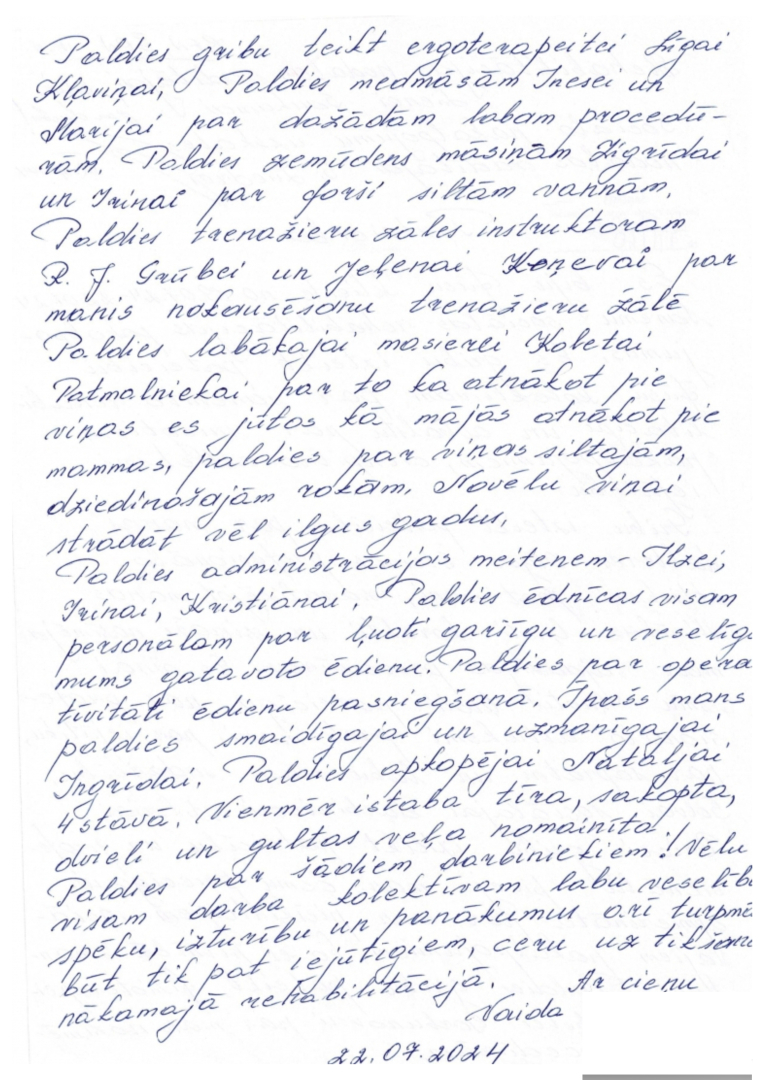 Paldies gribu teikt ergoterapeitei Līgai
Kļaviņai, Paldies medmāsām Inesei un
Marijai par dažādām labam procedū-
rām. Paldies zemūdens māsiņām Zigrīdai
un Irinai par forši siltām vannām.
Paldies trenažieru zāles instruktoram
R. J. Grūbei un Jeļenai Koņevai par
manis nokausēšanu trenažieru zālē
Paldies labākajai masierei Kobetai
Patmalniekai par to ka atnākot pie
viņas es jūtos kā mājās atnākot pie
mammas, paldies par viņas siltajām,
dziedinošajām rokām. Novēlu viņai
strādāt vēl ilgus gadus.
Paldies administrācijas meitenem - Ilzei,
Irinai, Kristiānai. Paldies ēdnīcas visam
personālam par ļuoti garšīgu un veselīg
mums gatavoto ēdienu. Paldies par opera
tīvitāti ēdienu pasniegšanā. Īpašs mans
paldies smaidīgajai un uzmanīgajai
Ingrīdai. Paldies apkopējai Nataļjai
4 stāvā. Vienmēr istaba tīra, sakopta,
dvieli un gultas veļa nomainīta.
Paldies par šādiem darbiniekiem! Vēlu
visam darba kolektīvam labu veselīb
spēku, izturību un panākumus arī turpmā
būt tik pat iejūtīgiem, ceru uz tikšanu
nākamajā rehabilitācijā. Ar cieņu
Naida
22.07.2024